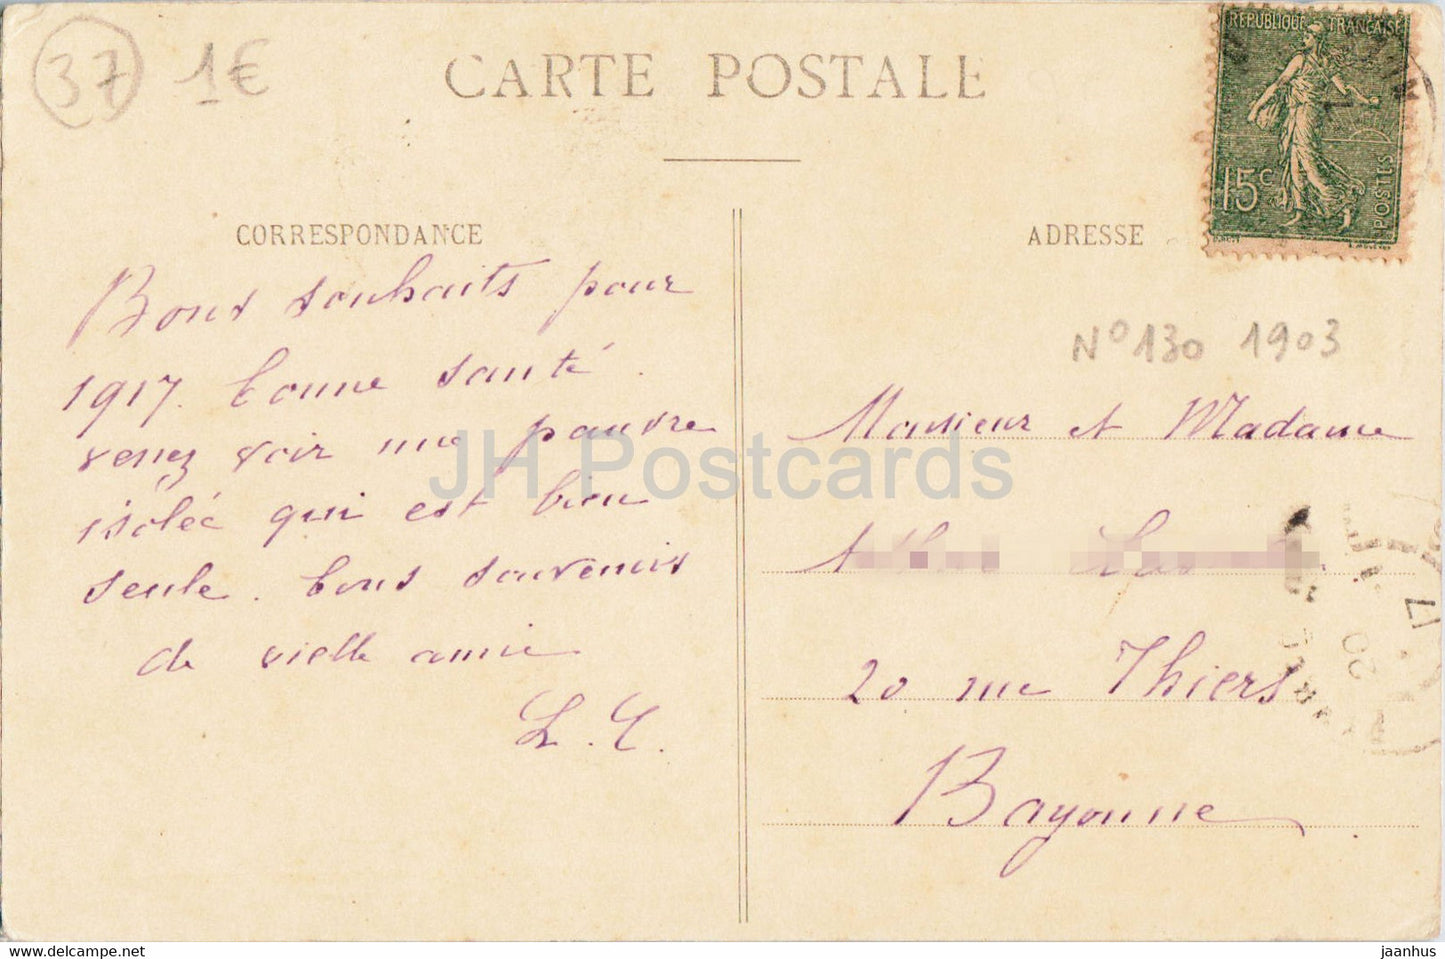 37 1€
CARTE POSTALE
REPUBLIQUE FRANÇAISE
15c
POSTES
CORRESPONDANCE
Bons souhaits pour
1917. bonne santé.
venez voir une pauvre
isolée qui est bien
seule. bons souvenirs
de vieille amie
L. C.
ADRESSE
N° 130 1903
Monsieur et Madame
20 rue Thiers
Bayonne
JH Postcards
www.delcampe.net
jaanhus